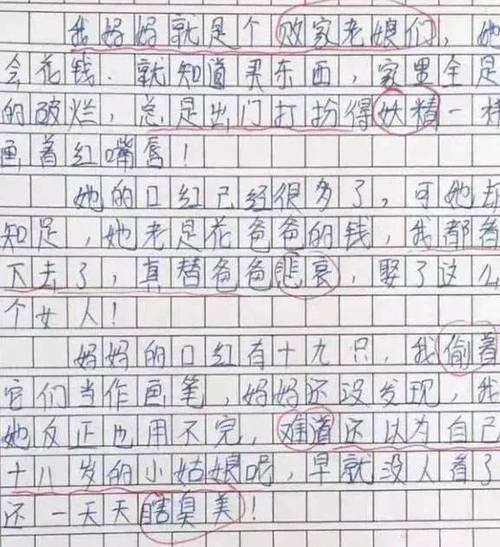 我妈妈就是个败家老娘们，她
会花钱．就知道买东西，家里全是
的破烂，总是出门打扮得妖精一样
画着红嘴唇！
她的口红已经很多了，可她却
知足，她老是花爸爸的钱，我都看
下去了，真替爸爸悲哀，娶了这么
个女人！
妈妈的口红有十九只，我偷着
它们当作画笔，妈妈还没发现，我
她反正也用不完，难道还以为自己
十八岁的小姑娘呢，早就没人看了
还一天天瞎臭美！